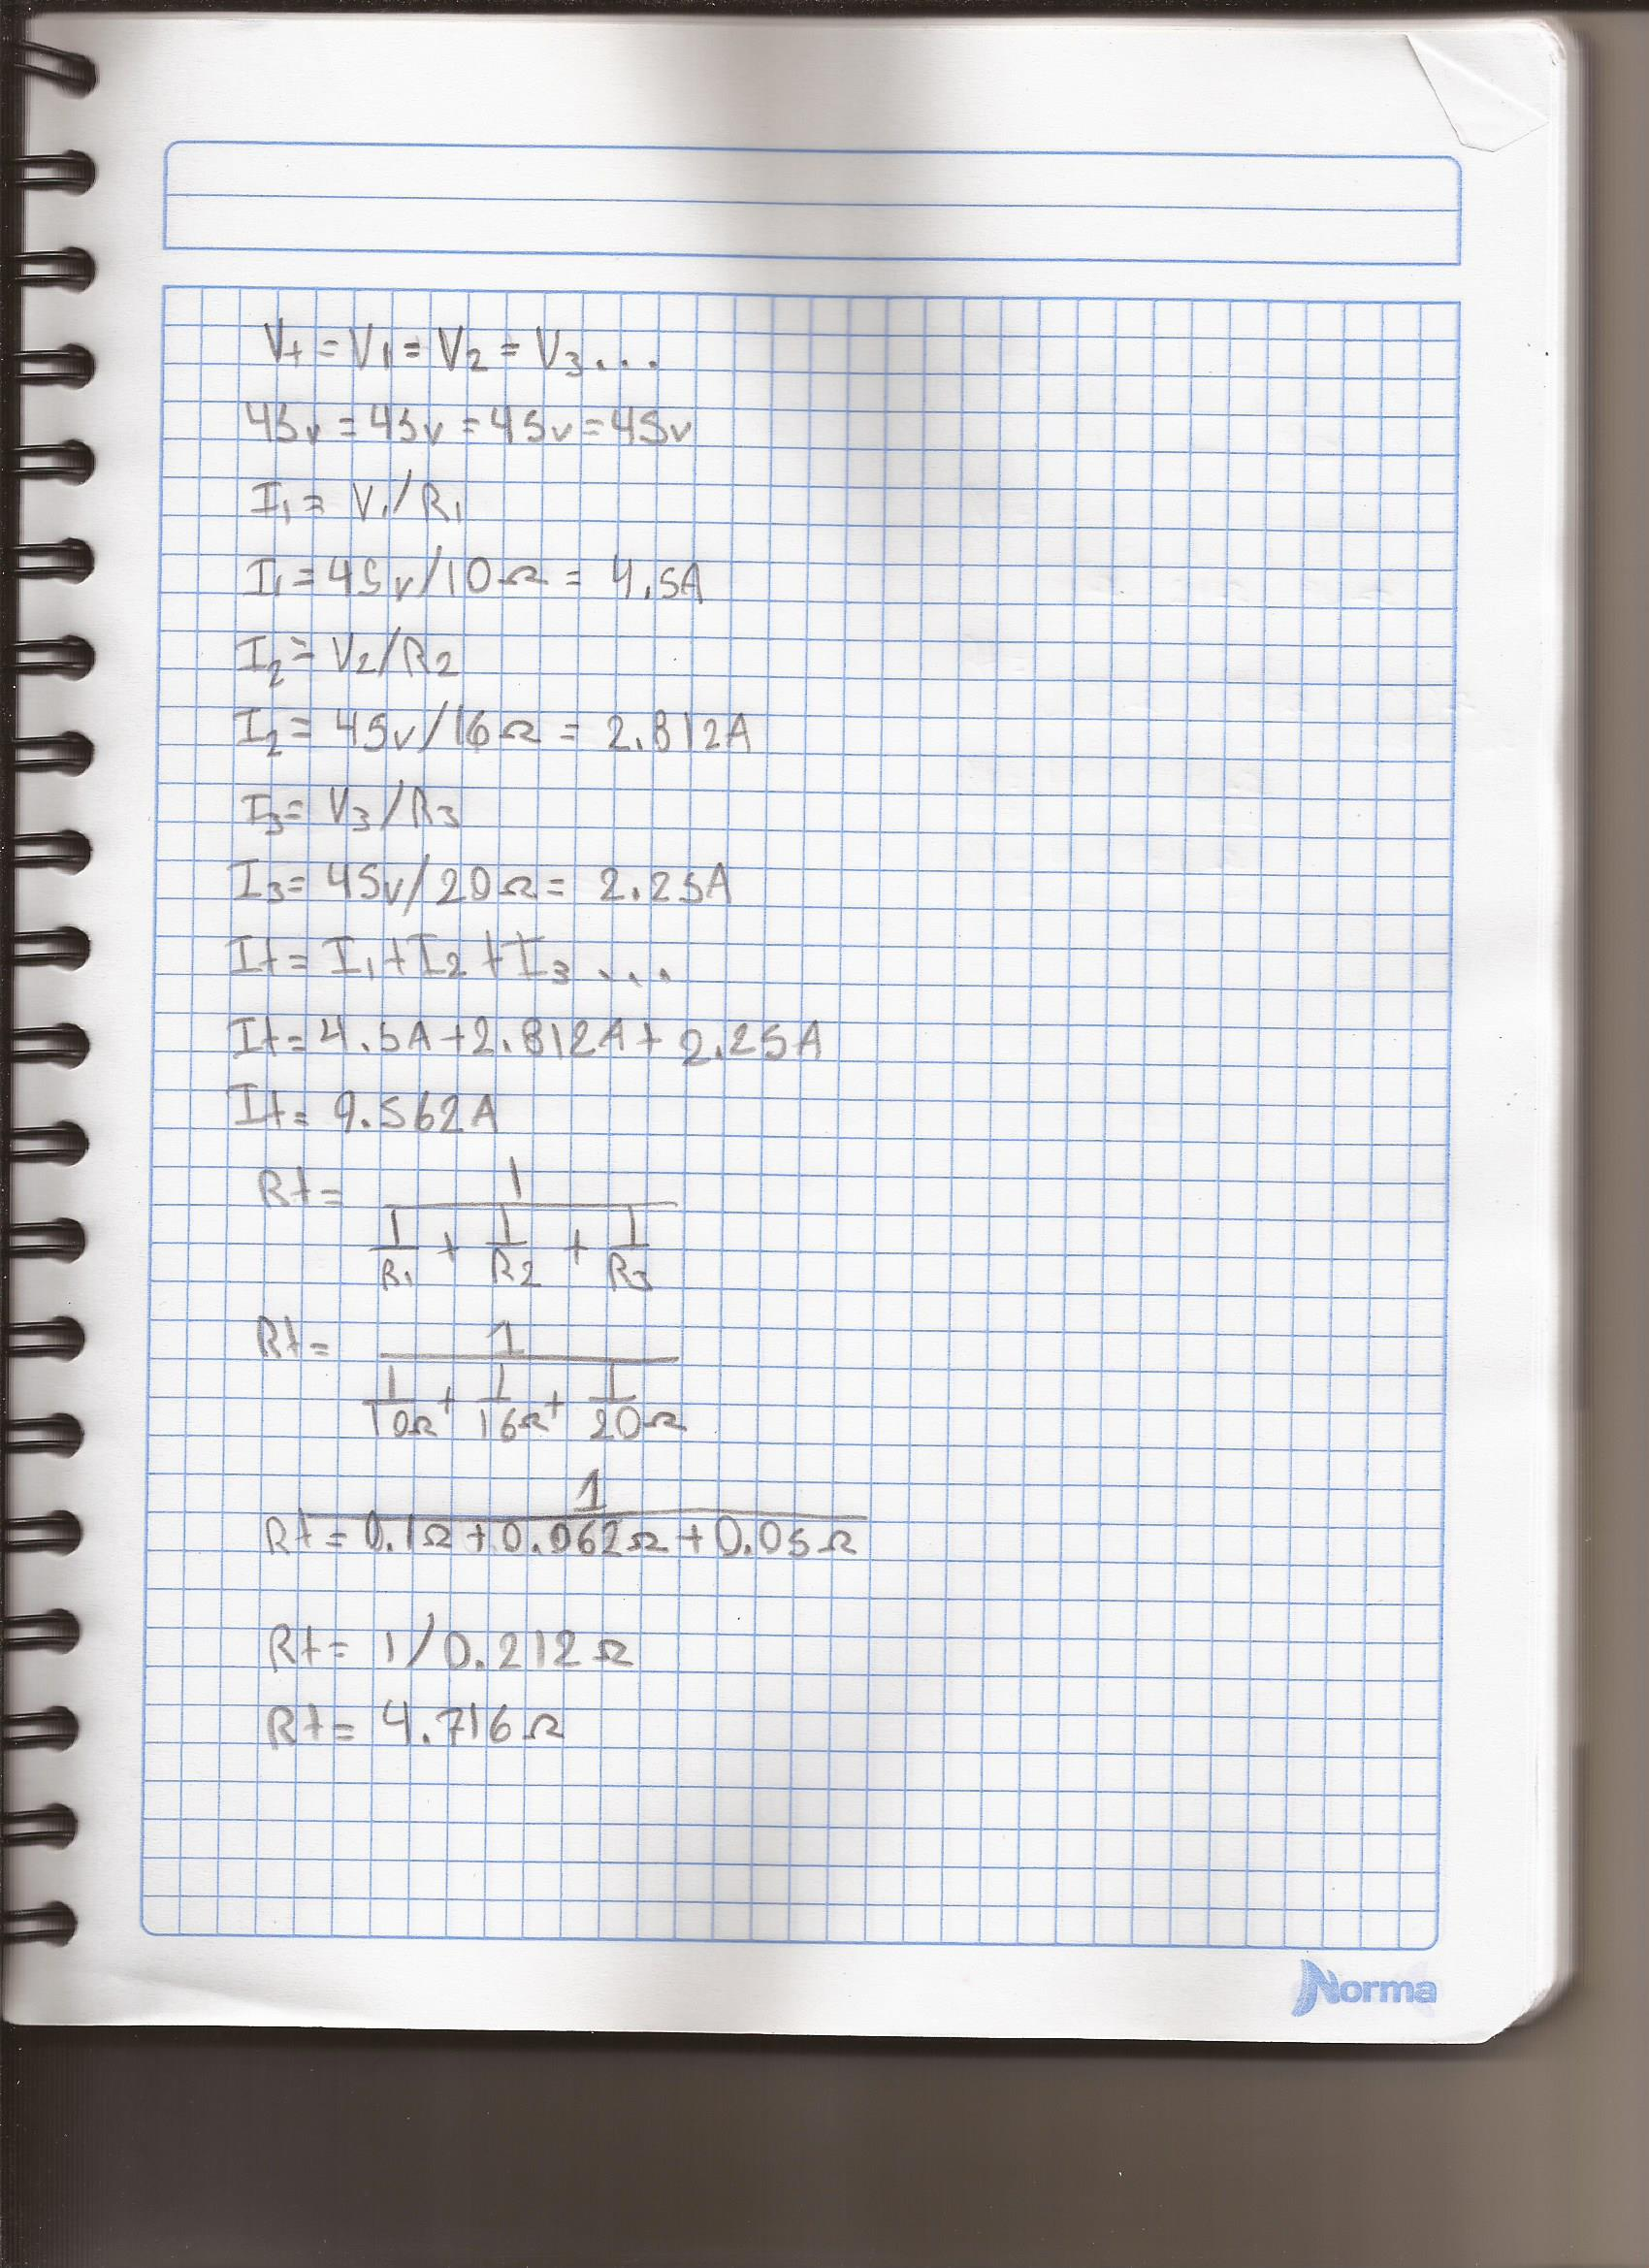 Vt = V1 = V2 = V3...
45v = 45v = 45v = 45v
I1 = V1/R1
I1 = 45v/10Ω = 4.5A
I2 = V2/R2
I2 = 45v/16Ω = 2.812A
I3 = V3/R3
I3 = 45v/20Ω = 2.25A
It = I1 + I2 + I3 ...
It = 4.5A + 2.812A + 2.25A
It = 9.562A
Rt = 1
1/R1 + 1/R2 + 1/R3
Rt = 1
1/10Ω + 1/16Ω + 1/20Ω
1
Rt = 0.1Ω + 0.062Ω + 0.05Ω
Rt = 1/0.212Ω
Rt = 4.716Ω
Norma